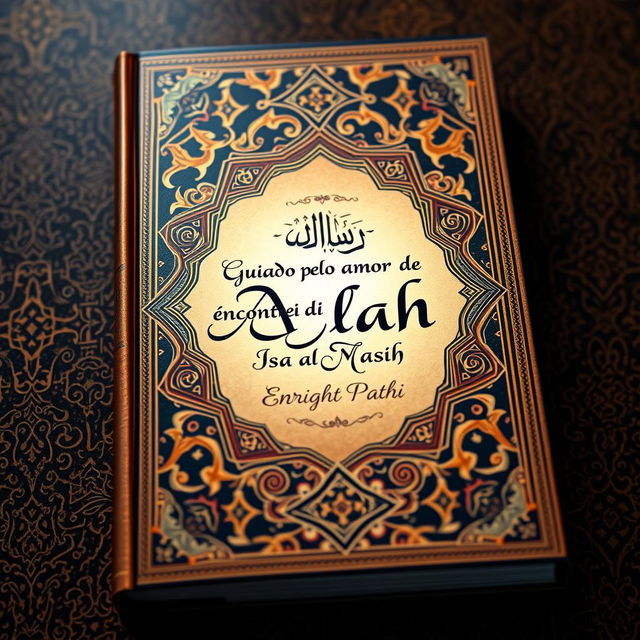 Guiado pelo amor de
éncontrei di Alah
Isa al Masih
Enright Pathi